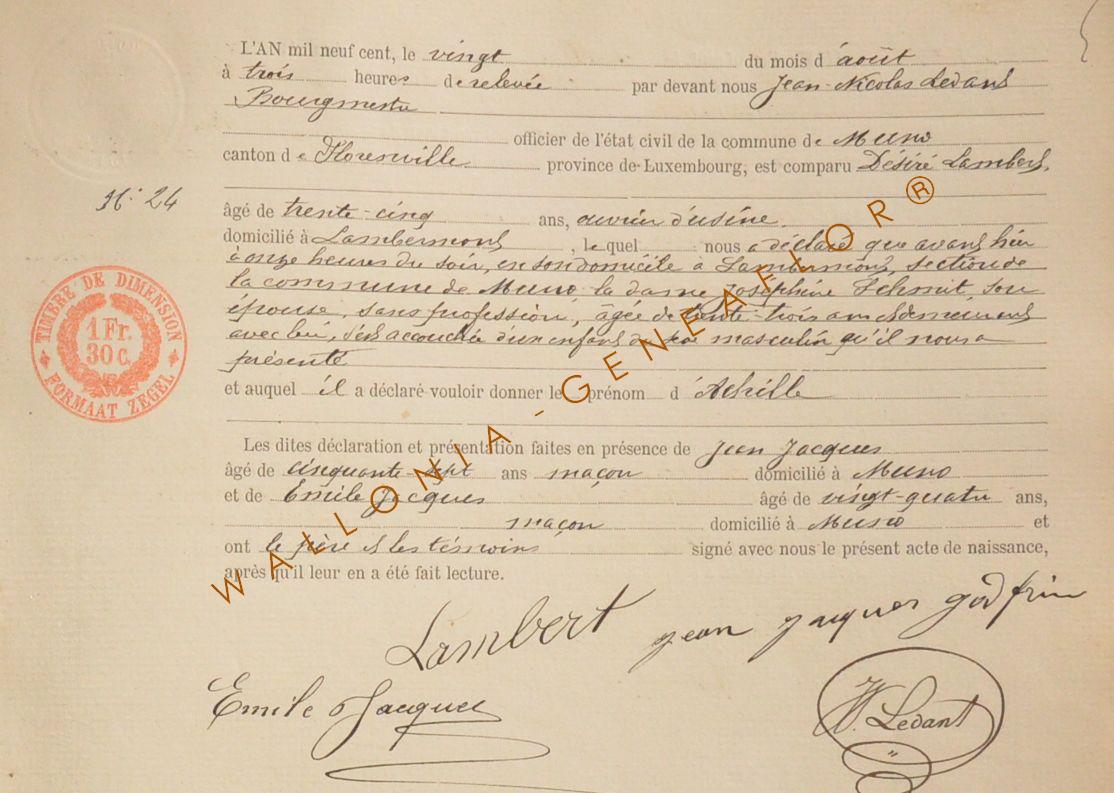 L'AN mil neuf cent, le vingt du mois d'août
à trois heures de relevée par devant nous Jean-Nicolas Ledant
Bourgmestre
officier de l'état civil de la commune de Muno
canton de Florenville province de Luxembourg, est comparu Désiré Lambert,
N° 24
âgé de trente-cinq ans, ouvrier d'usine
domicilié à Lambermont, lequel nous a déclaré que avant hier
à onze heures du soir, en son domicile à Lambermont, section de
la commune de Muno, la dame Joséphine Schmit, son
épouse, sans profession, âgée de trente-trois ans et demeurant
avec lui, s'est accouchée d'un enfant du sexe masculin qu'il nous a
présenté
et auquel il a déclaré vouloir donner le prénom d'Achille
Les dites déclaration et présentation faites en présence de Jean Jacques
âgé de cinquante-sept ans maçon domicilié à Muno
et de Emile Jacques âgé de vingt-quatre ans,
maçon domicilié à Muno et
ont le père et les témoins signé avec nous le présent acte de naissance,
après qu'il leur en a été fait lecture.
TIMBRE DE DIMENSION
1 Fr.
30 C.
FORMAAT ZEGEL
WALLONIA-GENEAFLOR®
Lambert jean jacques godfrin
Emile Jacques
N. Ledant